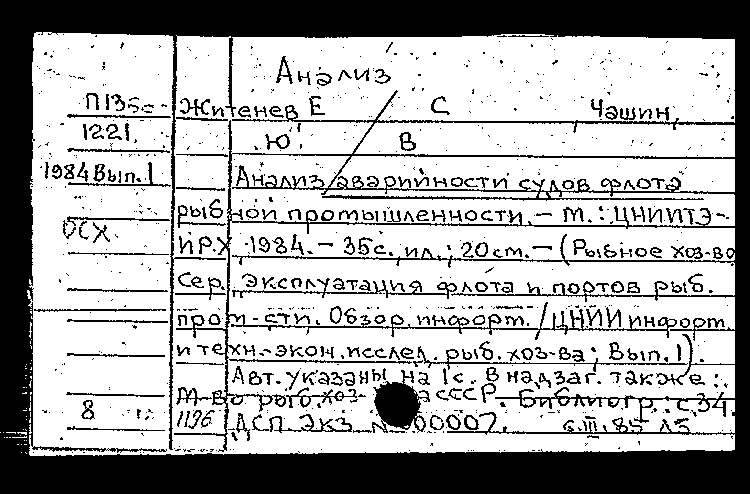 Анализ
П135с- Житенев Е С , Чашин,
1221. Ю. В
1984 Вып.1 Анализ аварийности судов флота
рыбной промышленности. – М. : ЦНИИТЭ-
ОСХ ИРХ, 1984. – 35с., ил.; 20 см. – (Рыбное хоз-во
Сер. Эксплуатация флота и портов рыб.
пром-сти. Обзор. информ. / ЦНИИ информ.
и техн.-экон. исслед. рыб. хоз-ва; Вып. 1).
Авт. указаны на 1 с. В надзаг. также :
М-во рыб. хоз- а СССР. Библиогр.: с.34.
8 1196 ДСП. Экз. 00007. 6.III.85